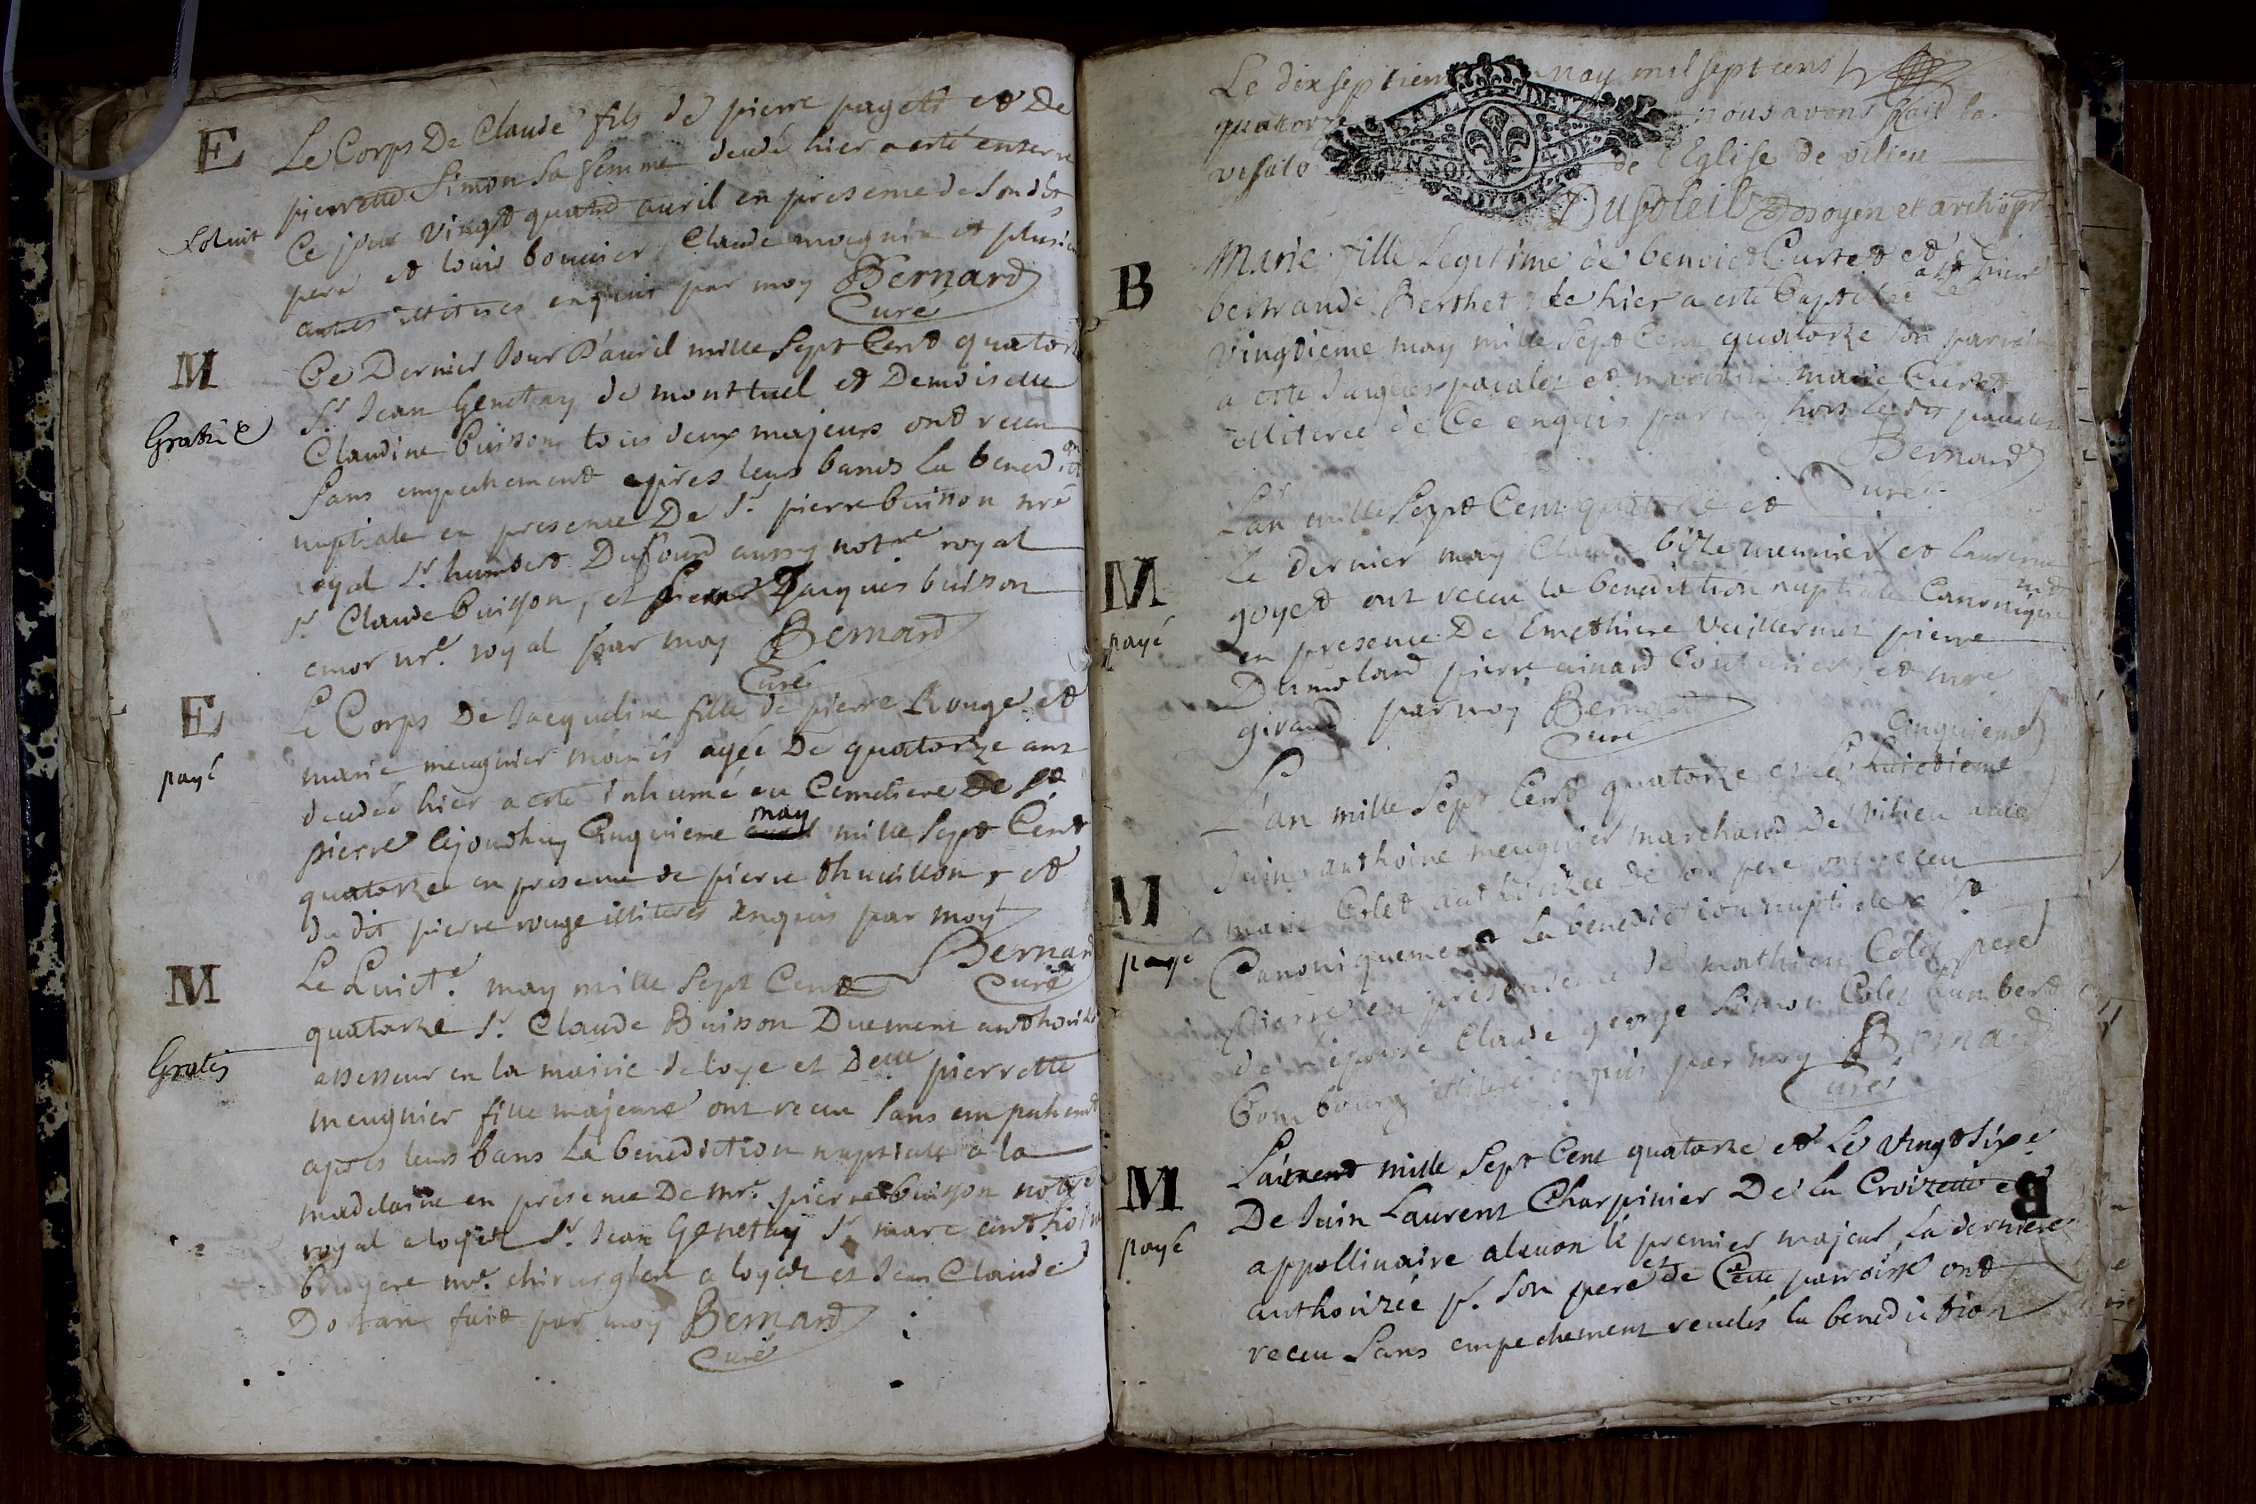 E
Le Corps De Claude fils de pierre pagett et De
pierrette Simon sa femme decedé hier a esté enterré
Soluit
Ce jour vingt quatre auril en presence de Son dit
pere et louis bouuier Claude mugnier et plusieurs
autres illiteres enquis par moy Bernard
Curé
M
Ce Dernier Jour D'auril mille Sept Cent quatorze
Gratis
Sr. Jean Genetay de montluel et Demoiselle
Claudine buisson tous deux majeurs ont receu
Sans empechement apres leurs bancs la benedion
nuptiale en presence De Sr. pierre buisson nre
royal Sr. humbert Dufourd aussy notre royal
Sr. Claude buisson, et Jacques buisson
nre. royal par moy Bernard
Curé
E
Le Corps De Jacqueline fille de pierre Rouge et
payé
marie meugnier mariés agée De quatorze ans
decedée hier a esté inhumé au Cemetiere De St
pierre cejourdhuy Cinquieme may mille Sept Cent
quatorze en presence de pierre thuillon, et
du dit pierre rouge illiteres enquis par moy
Bernard
Curé
M
Le huict.e may mille Sept Cent
quatorze Sr. Claude Buisson Duement authorisé
Gratis
assesseur en la mairie de loye et Delle pierrette
meugnier fille majeure ont receu Sans empechemt
apres leurs bans la benediction nuptiale a la
madelaine en presence De mr. pierre buisson notre
royal a loyet Sr. Jean Genetay Sr. marc anthoine
brugere mre. chirurgien a loyet et Jean Claude
Dortan fait par moy Bernard
Curé
Le dix septieme may mil sept cens
quatorze nous avons fait la
visite de l'Eglise de vilieu
Dusoleil Doyen et archipr
B
Marie fille Legitime de benoict Curtet et de
bertrande Berthet née hier a esté baptisée Le
vingtieme may mille Sept Cent quatorze Son parrain
a esté Jacques pacalet et marraine marie Curtet
illiterée de Ce enquis par moy hors le dit pacalet
Bernard
Curé
L'an mille Sept Cent quatorze et
M
Le dernier may Claude bize meunier et laurence
payé
goyet ont receu la benediction nuptiale Canoniquemt
en presence De Emethiere Veuillermet pierre
Dumolard pierre ainard Couturier et mre
giraud par moy Bernard
Curé
Cinquieme
L'an mille Sept Cent quatorze et le huictieme
M
Juin anthoine meugnier marchand De vilieu auec
payé
marie Colet authorizée De son pere ont receu
Canoniquement La benediction nuptiale a St
pierre en presence de mathieu Colet pere
de l'epouse Claude george Simon Colet humbert
Combourg illiteres enquis par moy Bernard
Curé
M
L'an mille Sept Cent quatorze et Le vingt Sixe
payé
De Juin Laurent Charpinier De la Croizette et
appollinaire aleuon le premier majeur, La derniere
authorizée pr. Son pere et de Cette parroisse ont
receu Sans empechement reuelés la benediction